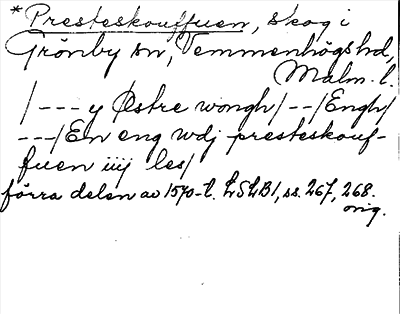 *Presteskouffuen, skog i
Grönby sn, Vemmenhögs hd,
Malm. l.
/---y Østre wongh/--/Engh/
---/En eng wdj presteskouf-
fuen iiij les/
förra delen av 1570-t. LSLB1, ss. 267, 268.
orig.